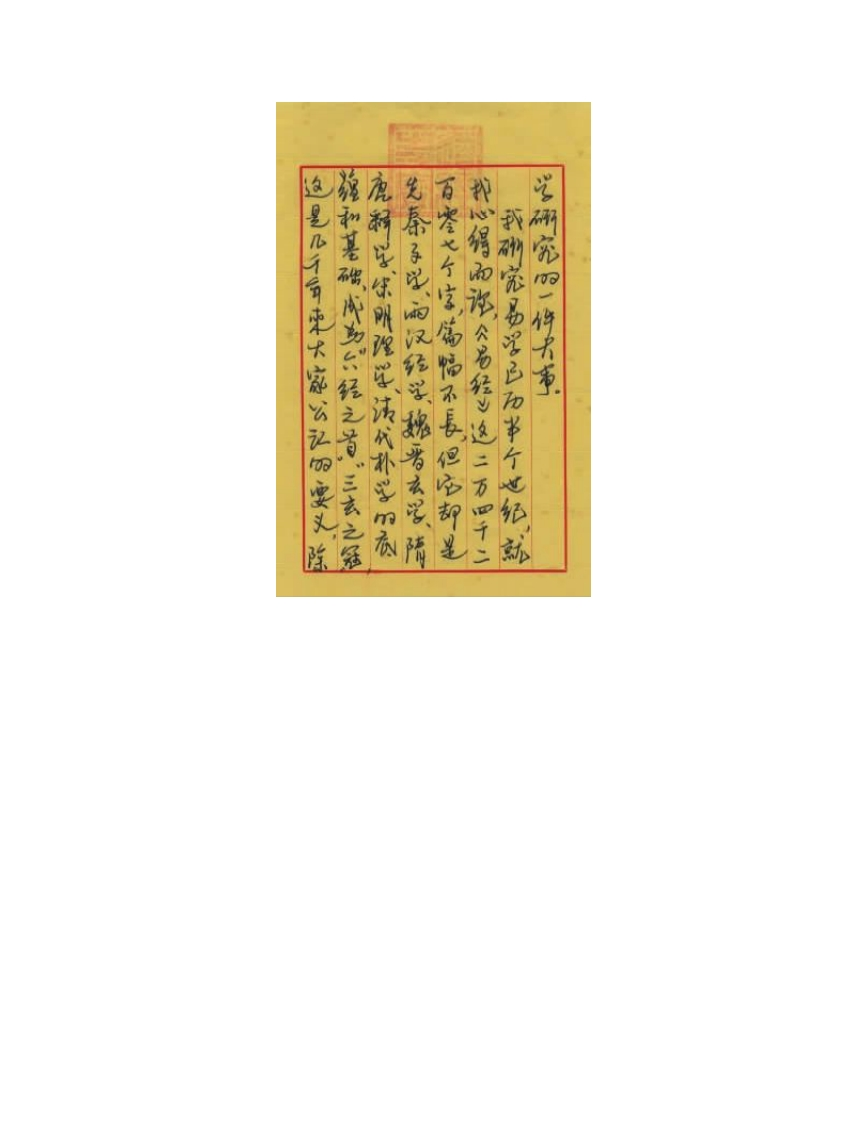 学研究的一件大事。
我研究易学已历半个世纪，就
我心得而说，《易经》这二万四千二
百零七个字，篇幅不长，但它却是
先秦子学、两汉经学、魏晋玄学、隋
唐释学、宋明理学、清代朴学的底
蕴和基础，成为“六经之首”“三玄之冠”，
这是几千年来大家公认的要义，除